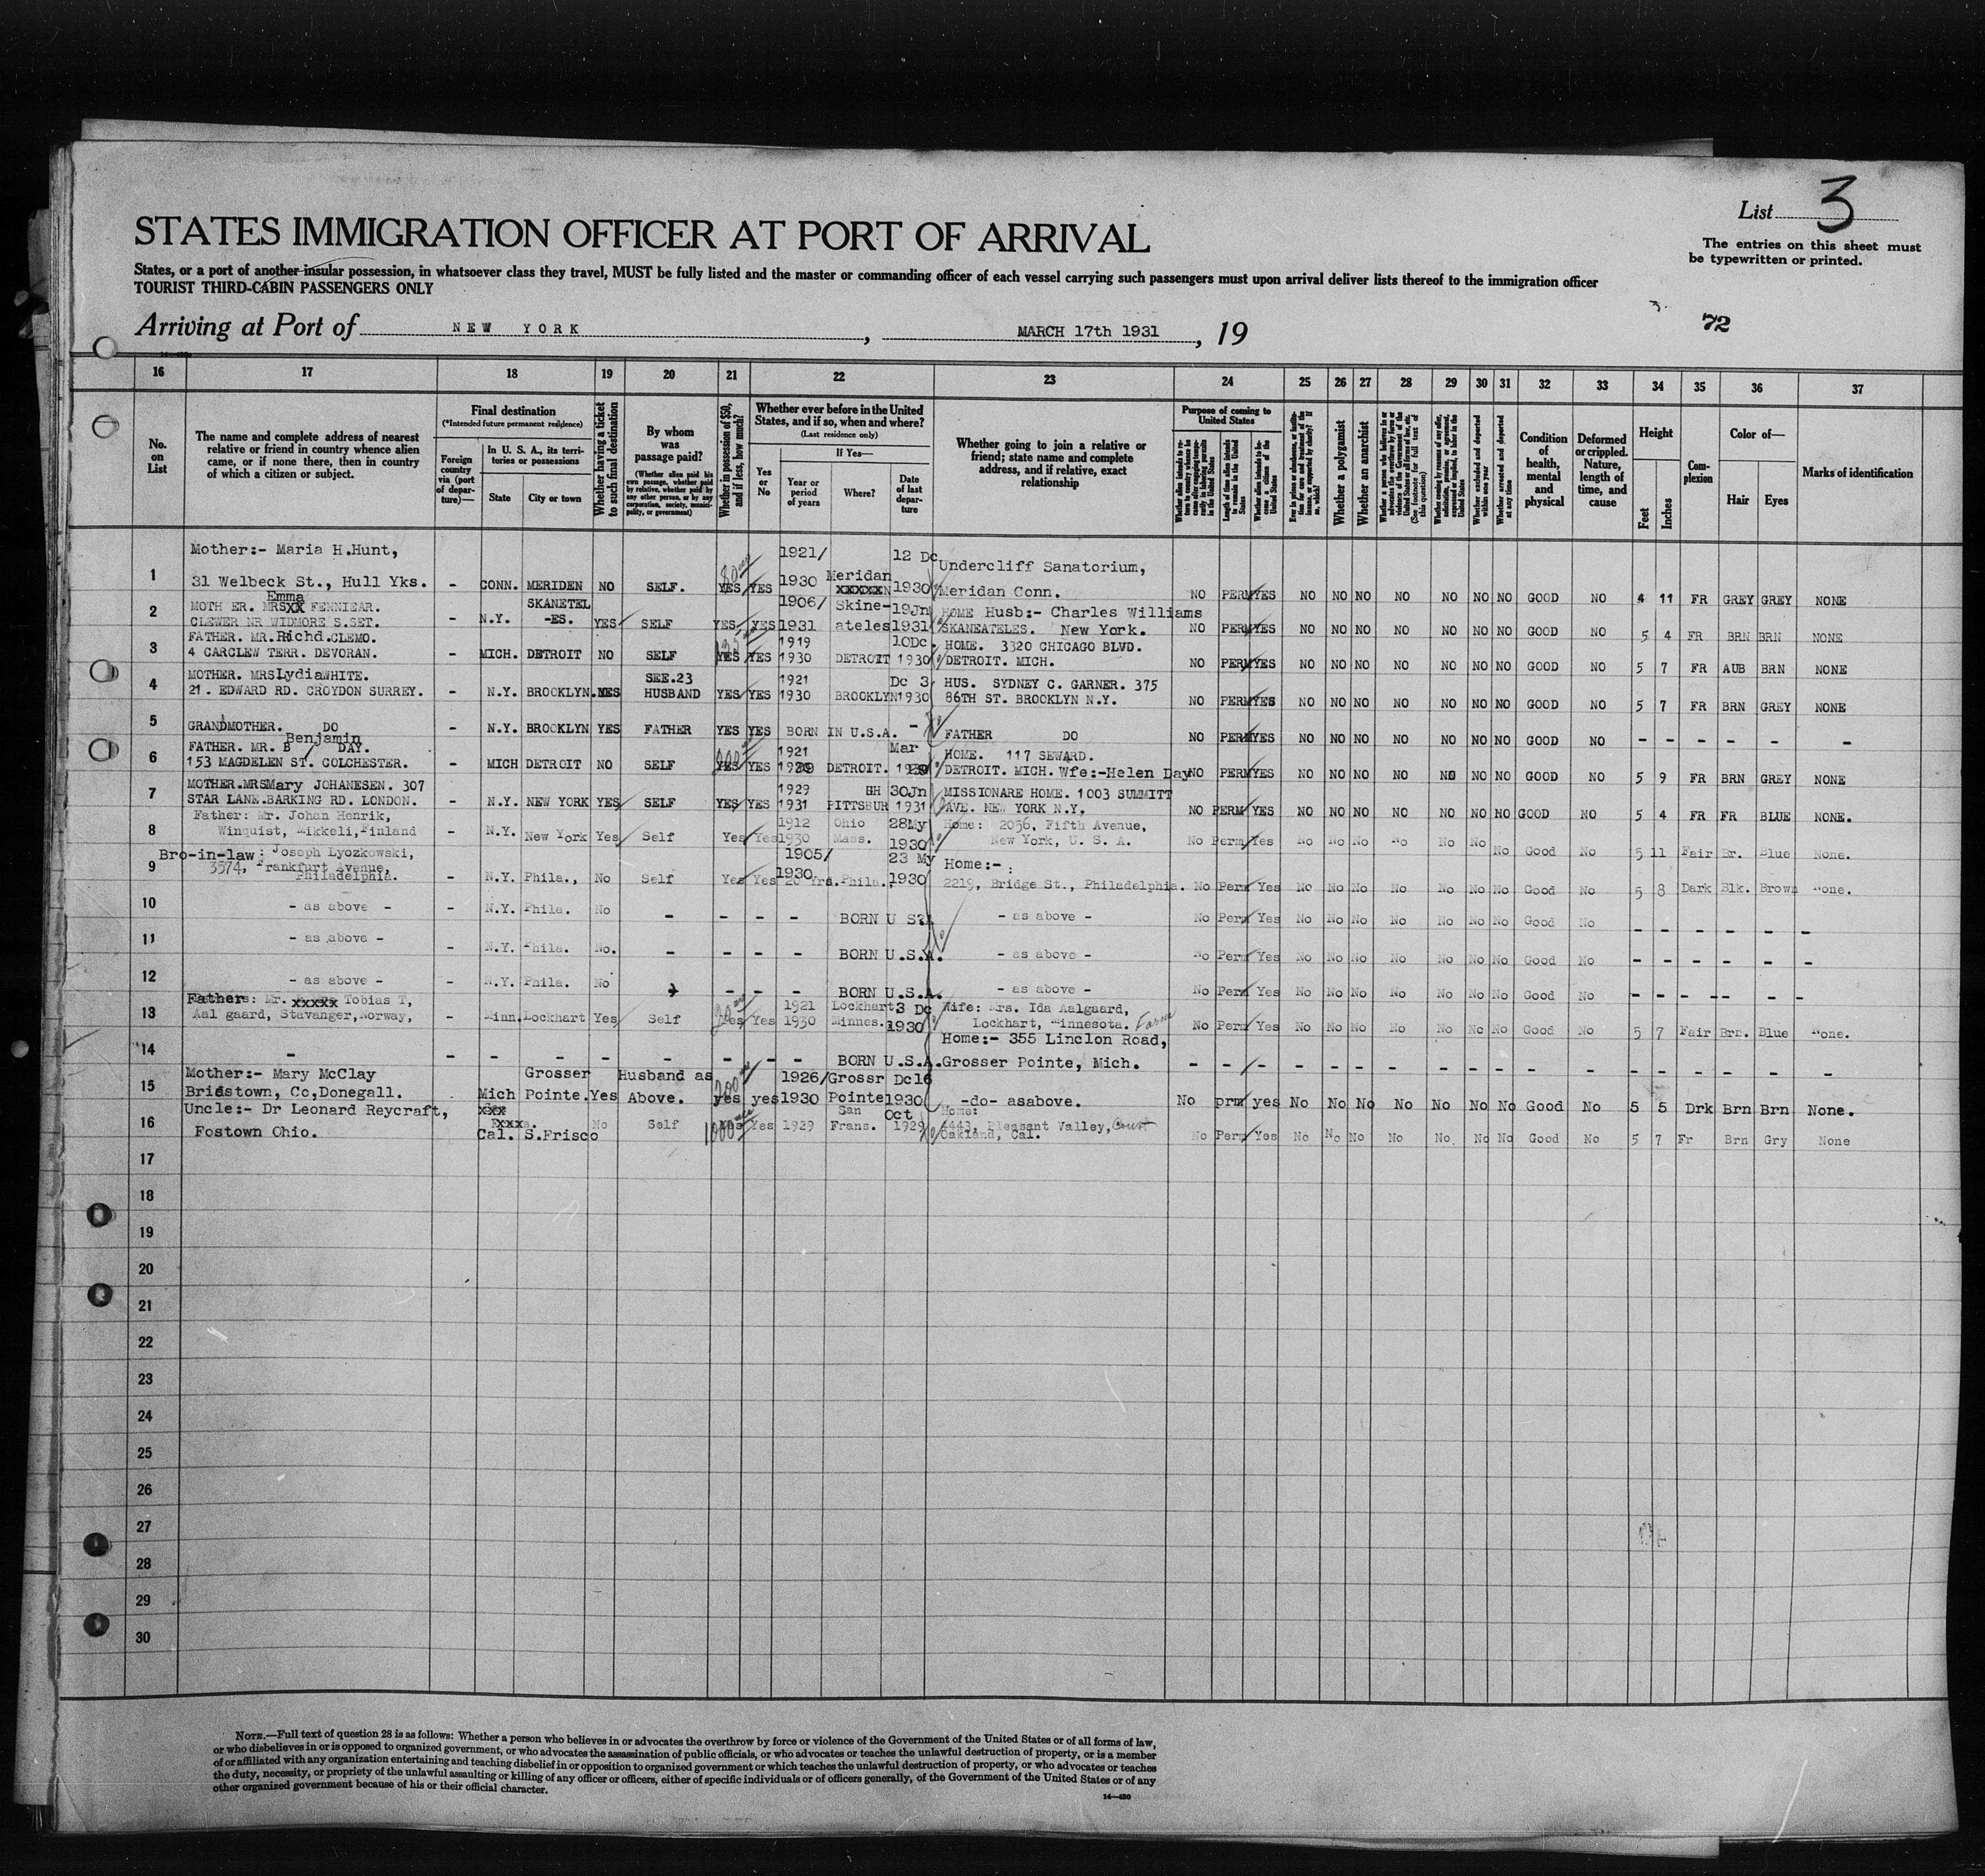 List 3
STATES IMMIGRATION OFFICER AT PORT OF ARRIVAL
The entries on this sheet must
be typewritten or printed.
States, or a port of another insular possession, in whatsoever class they travel, MUST be fully listed and the master or commanding officer of each vessel carrying such passengers must upon arrival deliver lists thereof to the immigration officer
TOURIST THIRD-CABIN PASSENGERS ONLY
Arriving at Port of NEW YORK, MARCH 17th 1931, 19
72
16 17 18 19 20 21 22 23 24 25 26 27 28 29 30 31 32 33 34 35 36 37
No. on List
The name and complete address of nearest relative or friend in country whence alien came, or if none there, then in country of which a citizen or subject.
Final destination
(*Intended future permanent residence)
Foreign country via (port of departure)—
In U. S. A., its territories or possessions
State
City or town
Whether having a ticket to such final destination
By whom was passage paid?
(Whether alien paid his own passage, whether paid by relative, whether paid by any other person, or by any corporation, society, municipality, or government)
Whether in possession of $50, and if less, how much?
Whether ever before in the United States, and if so, when and where?
(Last residence only)
Yes or No
If Yes—
Year or period of years
Where?
Date of last departure
Whether going to join a relative or friend; state name and complete address, and if relative, exact relationship
Purpose of coming to United States
Whether a polygamist
Whether an anarchist
Condition of health, mental and physical
Deformed or crippled. Nature, length of time, and cause
Height
Feet
Inches
Complexion
Color of—
Hair
Eyes
Marks of identification
1 Mother:- Maria H.Hunt, 31 Welbeck St., Hull Yks. - CONN. MERIDEN NO SELF. YES YES 1921/1930 Meridan xxxxxN 12 Dc 1930 Undercliff Sanatorium, Meridan Conn. NO PERM YES NO NO NO NO NO NO NO GOOD NO 4 11 FR GREY GREY NONE
2 MOTH ER. MRSXX Emma FENNIEAR. CLEWER NR WIDMORE S.SET. - N.Y. SKANETEL-ES. YES SELF YES YES 1906/1931 Skine-ateles 19Jn 1931 HOME Husb:- Charles Williams SKANEATELES. New York. NO PERM YES NO NO NO NO NO NO NO GOOD NO 5 4 FR BRN BRN NONE
3 FATHER. MR.Richd.CLEMO. 4 CARCLEW TERR. DEVORAN. - MICH. DETROIT NO SELF YES YES 1919 1930 DETROIT 10Dc. 1930 HOME. 3320 CHICAGO BLVD. DETROIT. MICH. NO PERM YES NO NO NO NO NO NO NO GOOD NO 5 7 FR AUB BRN NONE
4 MOTHER. MRSLydiaWHITE. 21. EDWARD RD. CROYDON SURREY. - N.Y. BROOKLYN. YES SEE.23 HUSBAND YES YES 1921 1930 BROOKLYN Dc 3 1930 HUS. SYDNEY C. GARNER. 375 86TH ST. BROOKLYN N.Y. NO PERM YES NO NO NO NO NO NO NO GOOD NO 5 7 FR BRN GREY NONE
5 GRANDMOTHER. DO - N.Y. BROOKLYN YES FATHER YES YES BORN IN U.S.A. - FATHER DO NO PERM YES NO NO NO NO NO NO NO GOOD NO - - - - - -
6 FATHER. MR. B / Benjamin DAY. 153 MAGDELEN ST. COLCHESTER. - MICH DETROIT NO SELF YES YES 1921 DETROIT. Mar HOME. 117 SEWARD. DETROIT. MICH. Wfe:-Helen Day NO PERM YES NO NO NO NO NO NO NO GOOD NO 5 9 FR BRN GREY NONE
7 MOTHER.MRSMary JOHANESEN. 307 STAR LANE.BARKING RD. LONDON. - N.Y. NEW YORK YES SELF YES YES 1929 1931 PITTSBUR GH 30Jn 1931 MISSIONARE HOME. 1003 SUMMITT AVE. NEW YORK N.Y. NO PERM YES NO NO NO NO NO NO NO GOOD NO 5 4 FR FR BLUE NONE.
8 Father: Mr. Johan Henrik, Winquist, Mikkeli, Finland - N.Y. New York Yes Self Yes Yes 1912 1930 Ohio Mass. 28My 1930 Home: 2056, Fifth Avenue, New York, U. S. A. No Perm Yes No No No No No No No Good No 5 11 Fair Br. Blue None.
9 Bro-in-law: Joseph Lyozkowski, 3574, Frankfurt Avenue, Philadelphia. - N.Y. Phila., No Self Yes Yes 1905/1930 20 Yrs. Phila. 23 My 1930 Home:-: 2219, Bridge St., Philadelphia. No Perm Yes No No No No No No No Good No 5 8 Dark Blk. Brown None.
10 - as above - - N.Y. Phila. No - - - - BORN U S A - as above - No Perm Yes No No No No No No No Good No - - - - - -
11 - as above - - N.Y. Phila. No. - - - - BORN U.S.A. - as above - No Perm Yes No No No No No No No Good No - - - - - -
12 - as above - - N.Y. Phila. No - - - BORN U.S.A. - as above - No Perm Yes No No No No No No No Good No - - - - - -
13 Father: Mr. xxxxx Tobias T, Aal gaard, Stavanger, Norway, - Minn. Lockhart Yes Self Yes Yes 1921 1930 Lockhart Minnes. 3 Dc 1930 Wife: Mrs. Ida Aalgaard, Lockhart, Minnesota. Farm No Perm Yes No No No No No No No Good No 5 7 Fair Brn. Blue None.
14 - - - - - - - - - BORN U.S.A. Home:- 355 Linclon Road, Grosser Pointe, Mich. - - - - - - - - - - - - - - - - - -
15 Mother:- Mary McClay Bridstown, Co,Donegall. Mich Grosser Pointe. Yes Husband as Above. yes yes 1926/1930 Grossr Pointe Dc16 1930 -do- asabove. No prm yes No No No No No No No Good No 5 5 Drk Brn Brn None.
16 Uncle:- Dr Leonard Reycraft, Fostown Ohio. xxx Cal. S.Frisco No Self 1000 Yes Yes 1929 San Frans. Oct 1929 Home: 4443, Pleasant Valley, Court Oakland, Cal. No Perm Yes No No No No No No No Good No 5 7 Fr Brn Gry None
17
18
19
20
21
22
23
24
25
26
27
28
29
30
NOTE.—Full text of question 28 is as follows: Whether a person who believes in or advocates the overthrow by force or violence of the Government of the United States or of all forms of law,
or who disbelieves in or is opposed to organized government, or who advocates the assassination of public officials, or who advocates or teaches the unlawful destruction of property, or is a member
of or affiliated with any organization entertaining and teaching disbelief in or opposition to organized government or which teaches the unlawful destruction of property, or who advocates or teaches
the duty, necessity, or propriety of the unlawful assaulting or killing of any officer or officers, either of specific individuals or of officers generally, of the Government of the United States or of any
other organized government because of his or their official character.
14—430